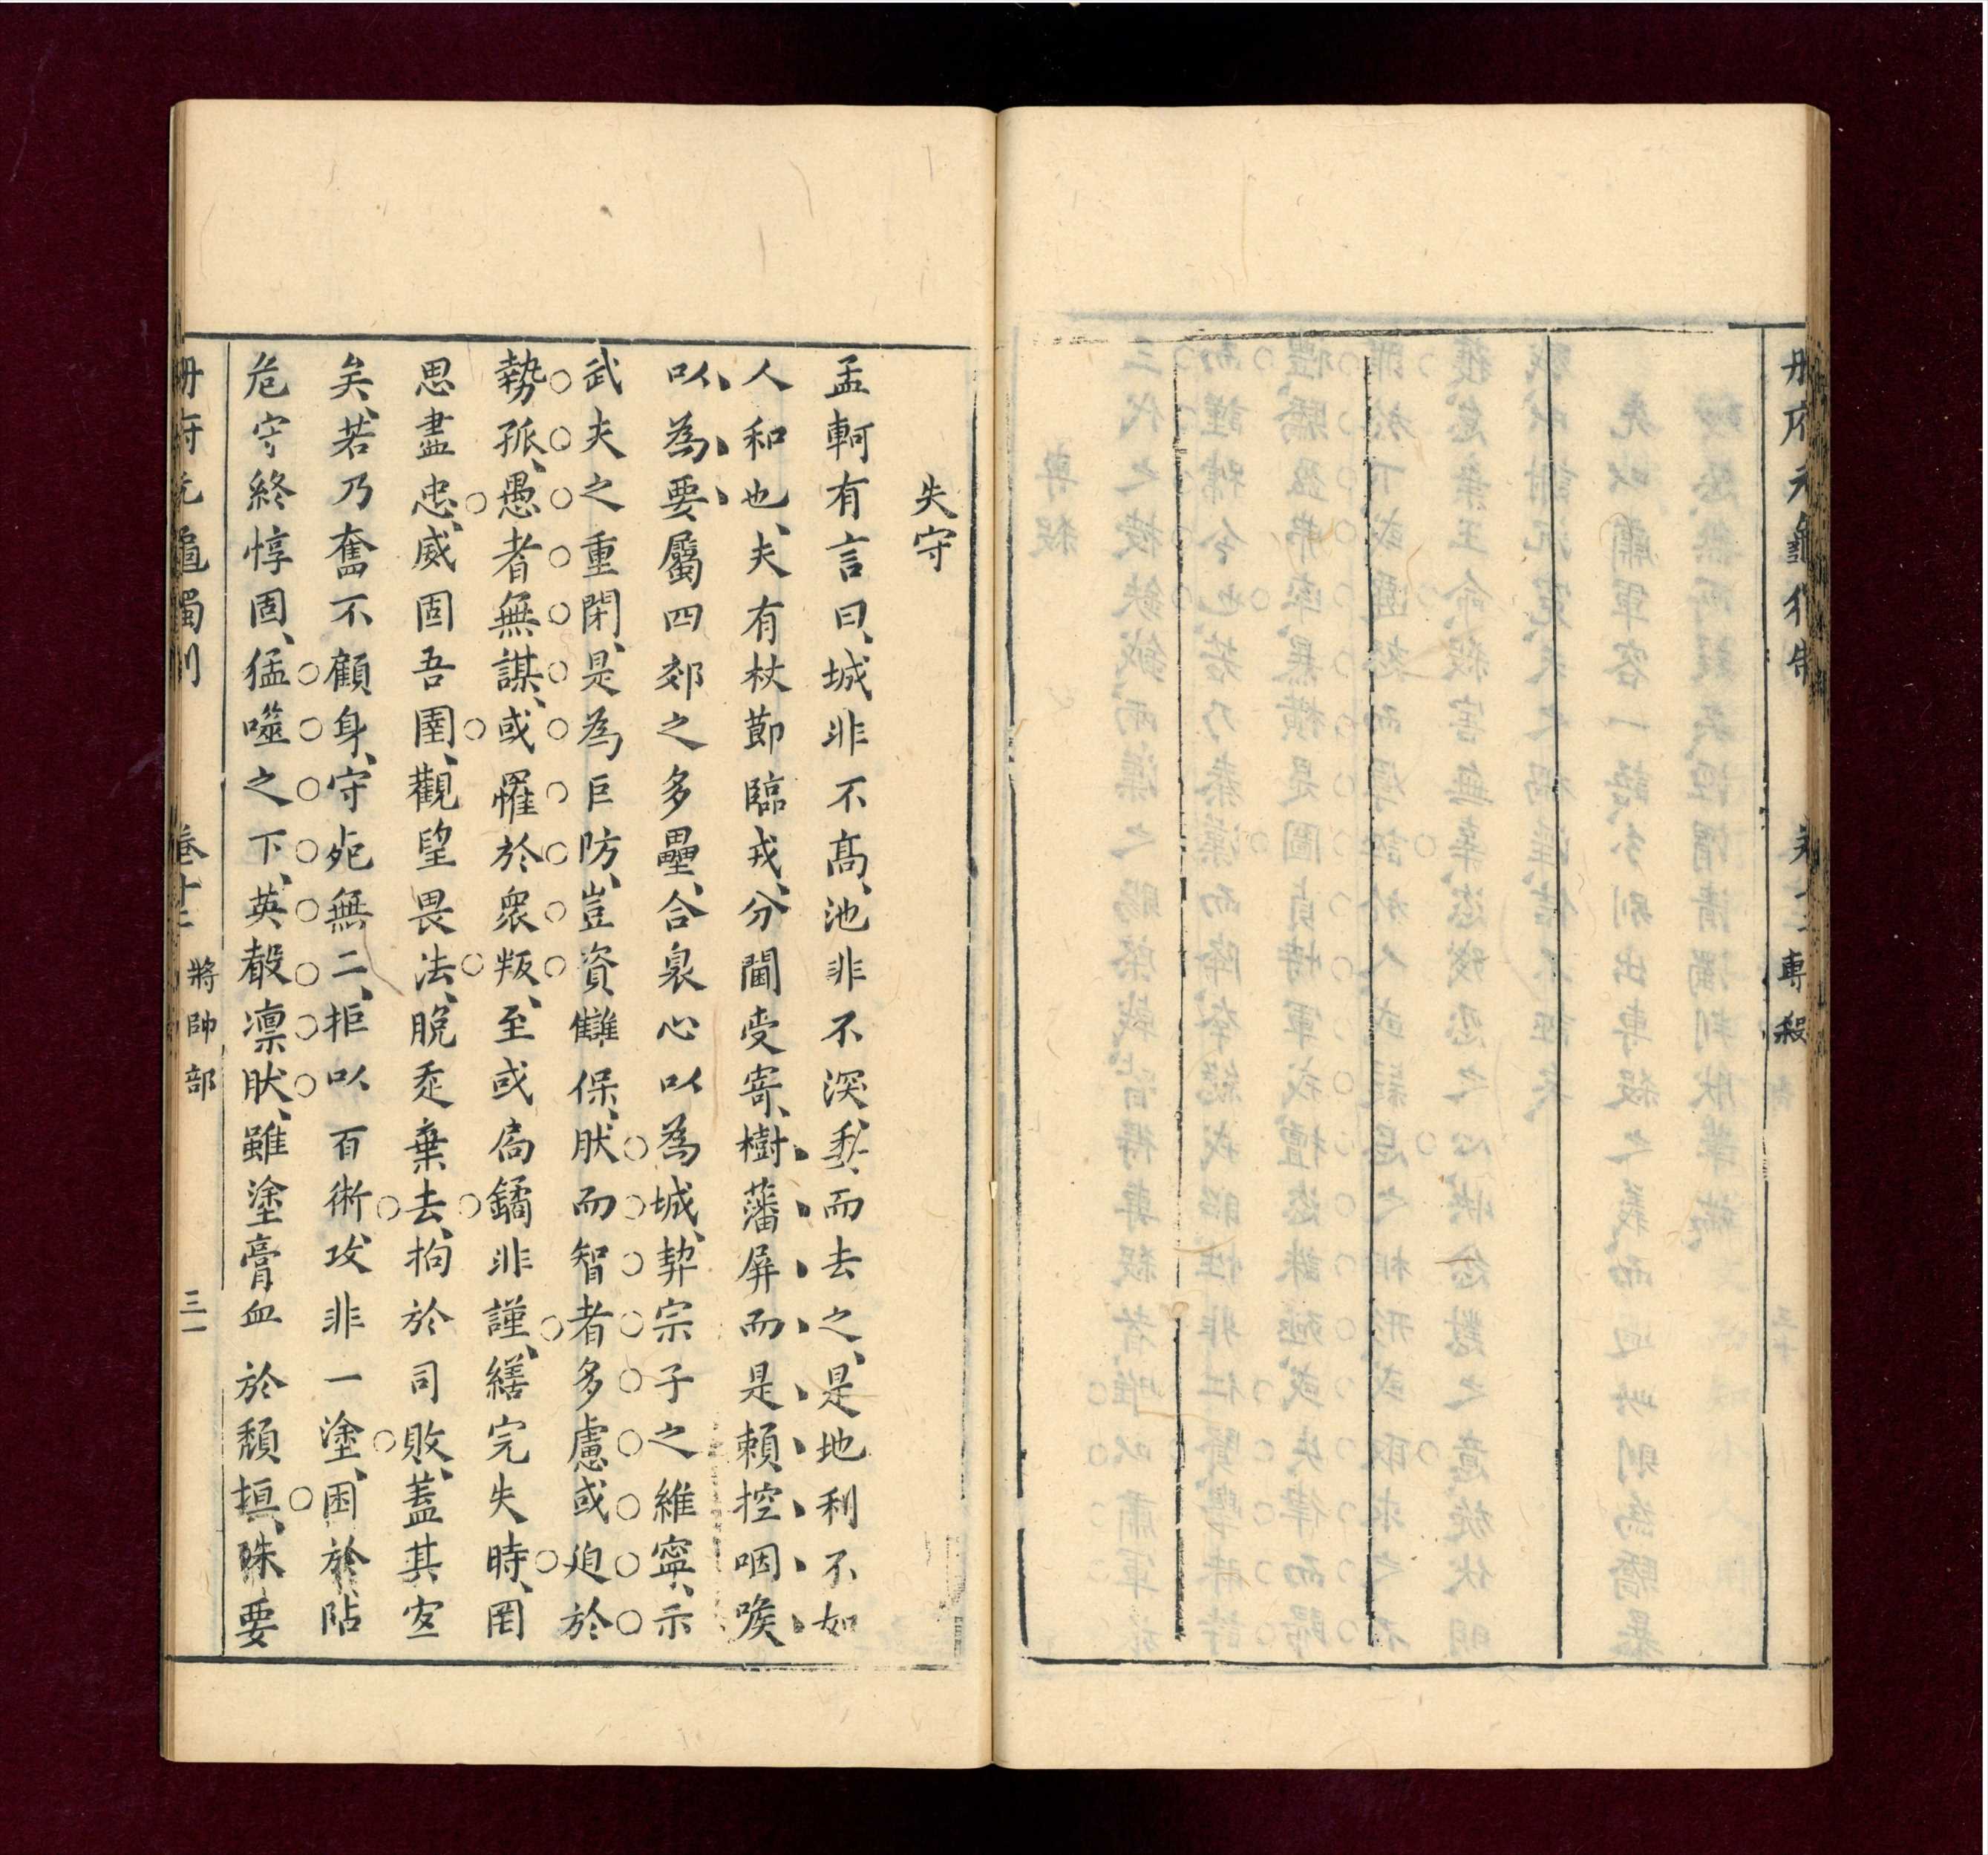 冊府元龜獨制
卷十二
專殺
失守
孟軻有言曰、城非不高、池非不深、委而去之、是地利不如
人和也、夫有杖節臨戎、分閫受寄、樹藩屏而是賴、控咽喉
以為要、屬四郊之多壘、合衆心以為城、葬宗子之維寧、示
武夫之重閉、是為巨防、豈資讎保、肰而智者多慮或迫於
勢孤、愚者無謀、或罹於衆叛、至或扃鐍非謹、繕完失時、罔
思盡忠、威固吾圉、觀望畏法、脫走棄去、拘於司敗、蓋其宐
矣、若乃奮不顧身、守死無二、拒以百術、攻非一塗、困於阽
危、守終惇固、猛噬之下、英聲凛肰、雖塗膏血於頹垣、殊要
冊府元龜獨制
卷十二
將帥部
三一